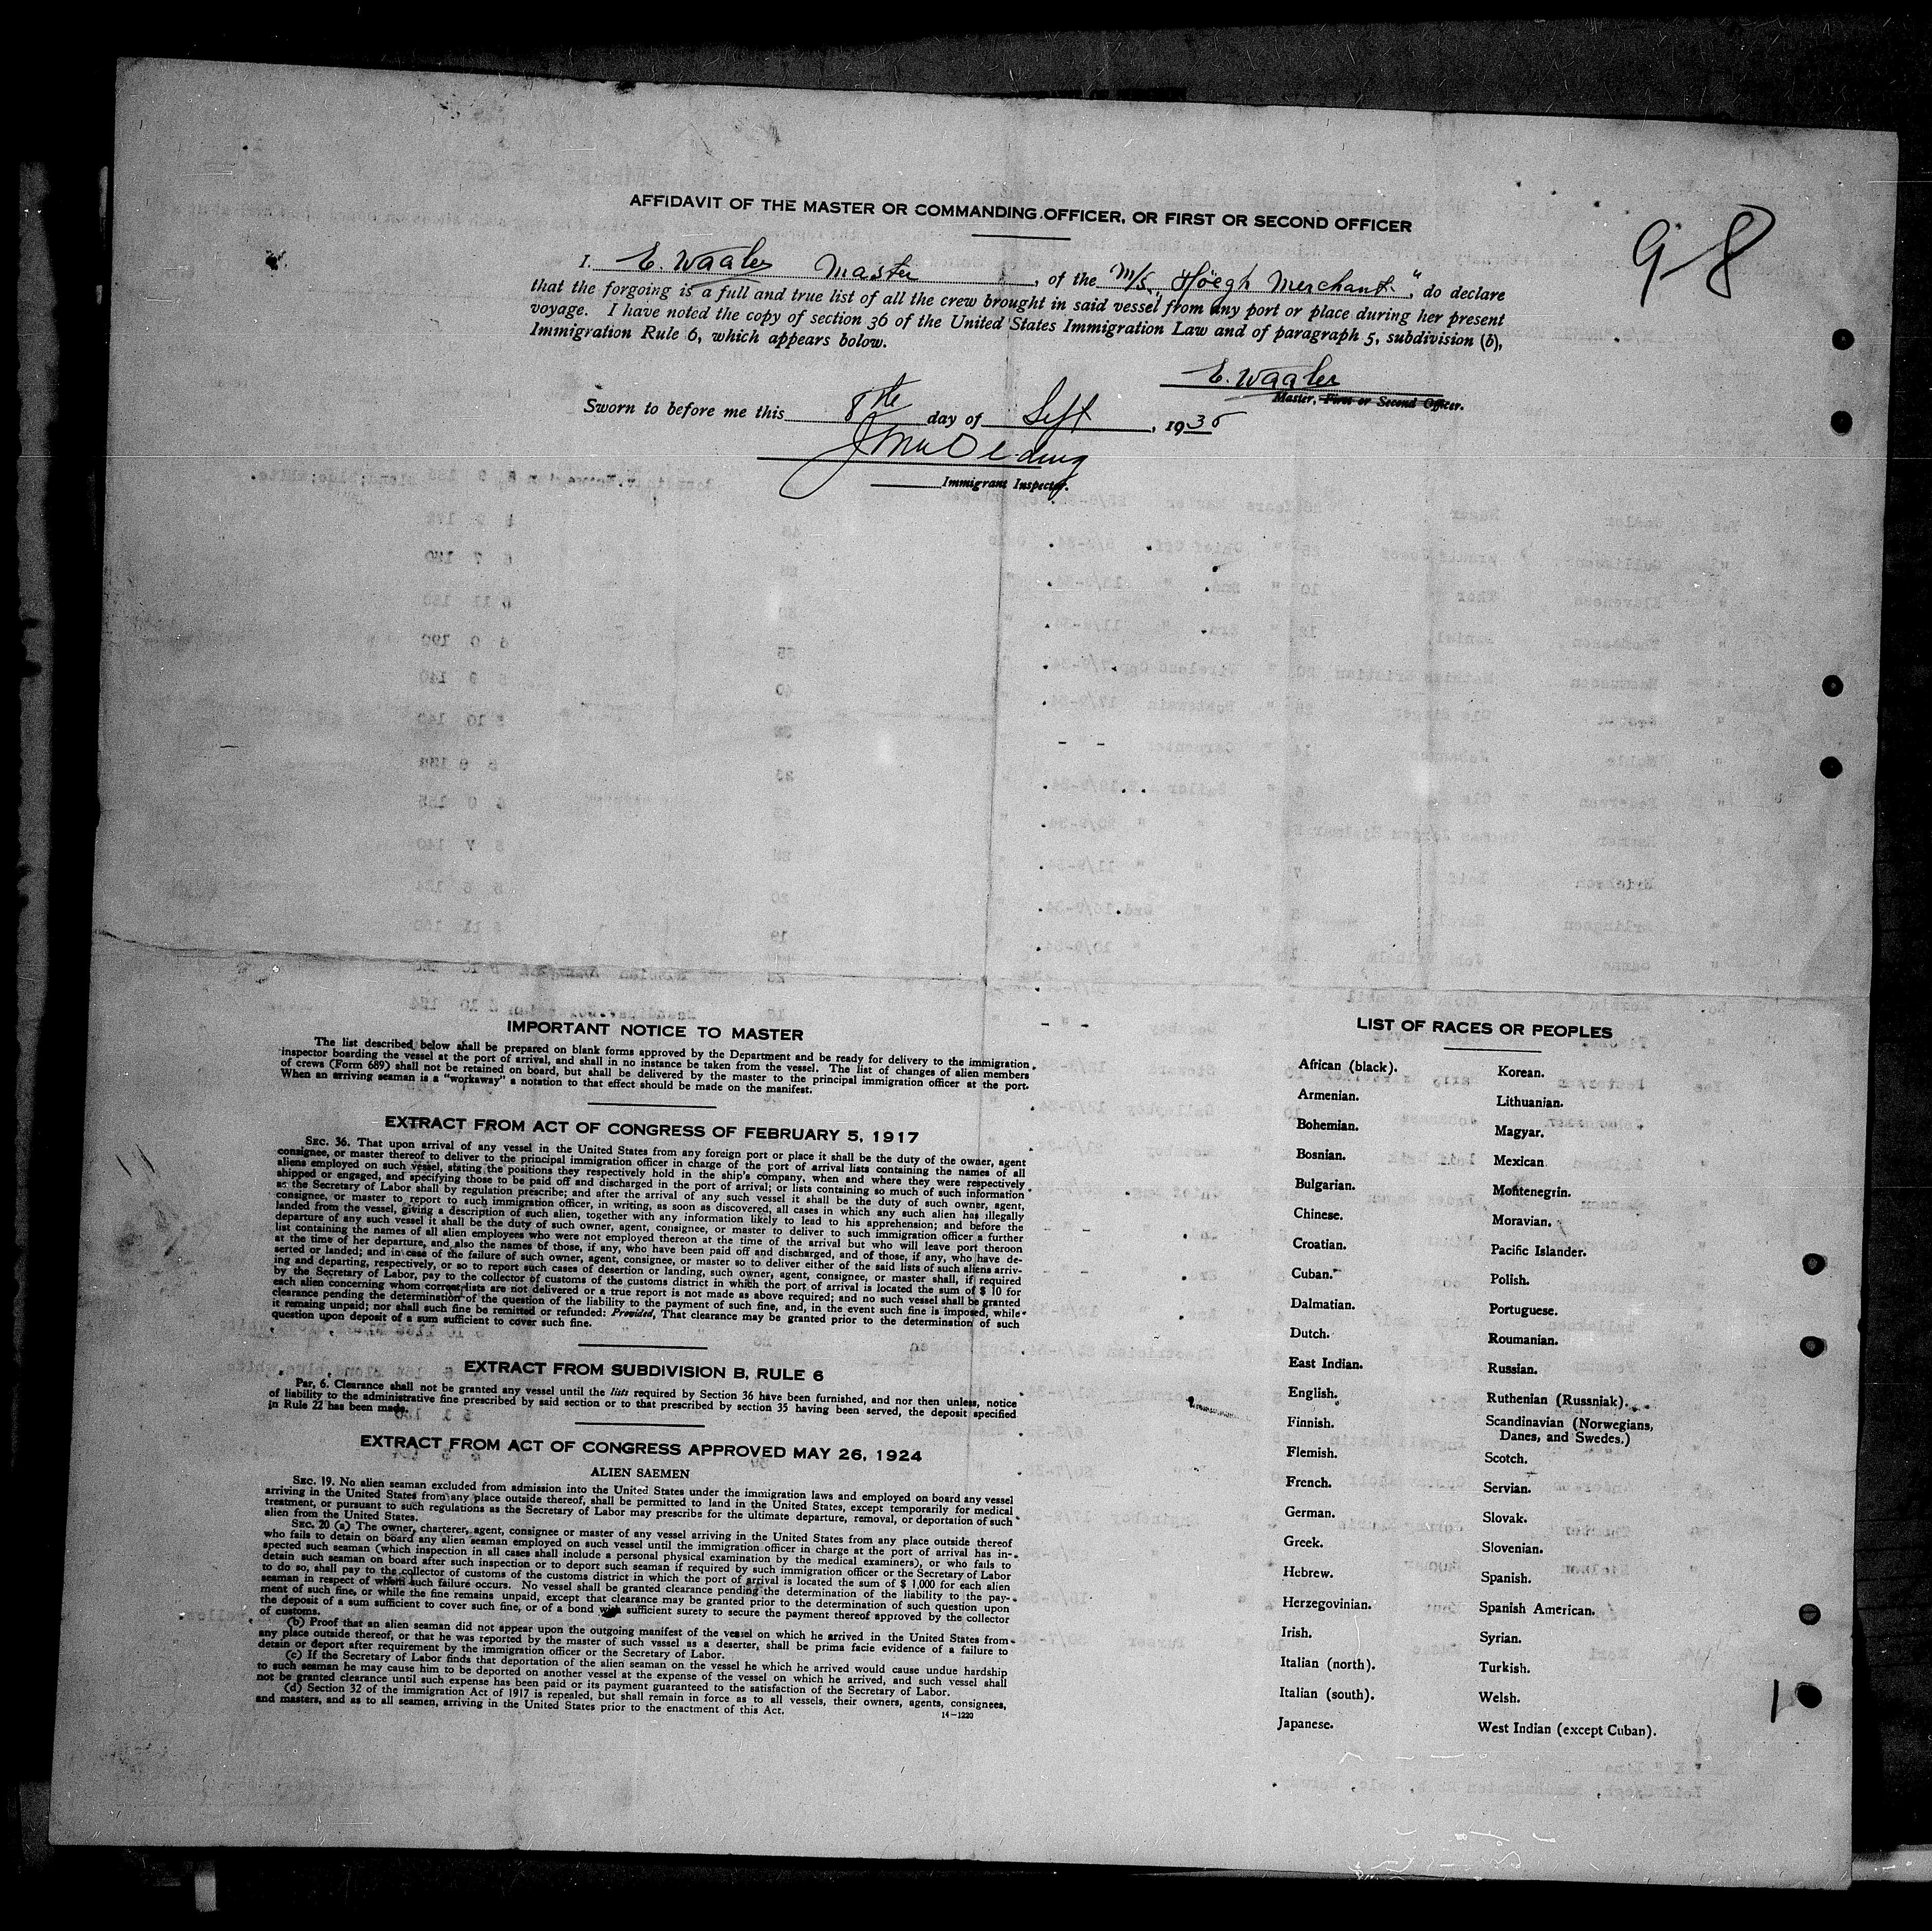 AFFIDAVIT OF THE MASTER OR COMMANDING OFFICER, OR FIRST OR SECOND OFFICER
98
I. E. Waaler Master, of the M/S. "Höegh Merchant", do declare
that the forgoing is a full and true list of all the crew brought in said vessel from any port or place during her present
voyage. I have noted the copy of section 36 of the United States Immigration Law and of paragraph 5, subdivision (b),
Immigration Rule 6, which appears bolow.
E. Waaler
Master, First or Second Officer.
Sworn to before me this 8th day of Sept, 1935
Immigrant Inspector.
IMPORTANT NOTICE TO MASTER
The list described below shall be prepared on blank forms approved by the Department and be ready for delivery to the immigration
inspector boarding the vessel at the port of arrival, and shall in no instance be taken from the vessel. The list of changes of alien members
of crews (Form 689) shall not be retained on board, but shall be delivered by the master to the principal immigration officer at the port.
When an arriving seaman is a "workaway" a notation to that effect should be made on the manifest.
EXTRACT FROM ACT OF CONGRESS OF FEBRUARY 5, 1917
SEC. 36. That upon arrival of any vessel in the United States from any foreign port or place it shall be the duty of the owner, agent
consignee, or master thereof to deliver to the principal immigration officer in charge of the port of arrival lists containing the names of all
aliens employed on such vessel, stating the positions they respectively hold in the ship's company, when and where they were respectively
shipped or engaged, and specifying those to be paid off and discharged in the port of arrival; or lists containing so much of such information
as the Secretary of Labor shall by regulation prescribe; and after the arrival of any such vessel it shall be the duty of such owner, agent,
consignee, or master to report to such immigration officer, in writing, as soon as discovered, all cases in which any such alien has illegally
landed from the vessel, giving a description of such alien, together with any information likely to lead to his apprehension; and before the
departure of any such vessel it shall be the duty of such owner, agent, consignee, or master to deliver to such immigration officer a further
list containing the names of all alien employees who were not employed thereon at the time of the arrival but who will leave port theroon
at the time of her departure, and also the names of those, if any, who have been paid off and discharged, and of those, if any, who have de-
serted or landed; and in case of the failure of such owner, agent, consignee, or master so to deliver either of the said lists of such aliens arriv-
ing and departing, respectively, or so to report such cases of desertion or landing, such owner, agent, consignee, or master shall, if required
by the Secretary of Labor, pay to the collector of customs of the customs district in which the port of arrival is located the sum of $ 10 for
each alien concerning whom correct lists are not delivered or a true report is not made as above required; and no such vessel shall be granted
clearance pending the determination of the question of the liability to the payment of such fine, and, in the event such fine is imposed, while
it remaing unpaid; nor shall such fine be remitted or refunded: Provided, That clearance may be granted prior to the determination of such
question upon deposit of a sum sufficient to cover such fine.
EXTRACT FROM SUBDIVISION B, RULE 6
Par, 6. Clearance shall not be granted any vessel until the lists required by Section 36 have been furnished, and nor then unless, notice
of liability to the administrative fine prescribed by said section or to that prescribed by section 35 having been served, the deposit specified
in Rule 22 has been made.
EXTRACT FROM ACT OF CONGRESS APPROVED MAY 26, 1924
ALIEN SAEMEN
SEC. 19. No alien seaman excluded from admission into the United States under the immigration laws and employed on board any vessel
arriving in the United States from any place outside thereof, shall be permitted to land in the United States, except temporarily for medical
treatment, or pursuant to such regulations as the Secretary of Labor may prescribe for the ultimate departure, removal, or deportation of such
alien from the United States.
SEC. 20 (a) The owner, charterer, agent, consignee or master of any vessel arriving in the United States from any place outside thereof
who fails to detain on board any alien seaman employed on such vessel until the immigration officer in charge at the port of arrival has in-
spected such seaman (which inspection in all cases shall include a personal physical examination by the medical examiners), or who fails to
detain such seaman on board after such inspection or to deport such seaman if required by such immigration officer or the Secretary of Labor
to do so, shall pay to the collector of customs of the customs district in which the port of arrival is located the sum of $ 1,000 for each alien
seaman in respect of whom such failure occurs. No vessel shall be granted clearance pending the determination of the liability to the pay-
ment of such fine, or while the fine remains unpaid, except that clearance may be granted prior to the determination of such question upon
the deposit of a sum sufficient to cover such fine, or of a bond with sufficient surety to secure the payment thereof approved by the collector
of customs.
(b) Proof that an alien seaman did not appear upon the outgoing manifest of the vessel on which he arrived in the United States from
any place outside thereof, or that he was reported by the master of such vassel as a deserter, shall be prima facie evidence of a failure to
detain or deport after requirement by the immigration officer or the Secretary of Labor.
(c) If the Secretary of Labor finds that deportation of the alien seaman on the vessel he which he arrived would cause undue hardship
to such seaman he may cause him to be deported on another vessel at the expense of the vessel on which he arrived, and such vessel shall
not be granted clearance until such expense has been paid or its payment guaranteed to the satisfaction of the Secretary of Labor.
(d) Section 32 of the immigration Act of 1917 is repealed, but shall remain in force as to all vessels, their owners, agents, consignees,
and masters, and as to all seamen, arriving in the United States prior to the enactment of this Act.
14—1220
LIST OF RACES OR PEOPLES
African (black).
Armenian.
Bohemian.
Bosnian.
Bulgarian.
Chinese.
Croatian.
Cuban.
Dalmatian.
Dutch.
East Indian.
English.
Finnish.
Flemish.
French.
German.
Greek.
Hebrew.
Herzegovinian.
Irish.
Italian (north).
Italian (south).
Japanese.
Korean.
Lithuanian.
Magyar.
Mexican
Montenegrin.
Moravian.
Pacific Islander.
Polish.
Portuguese.
Roumanian.
Russian.
Ruthenian (Russniak).
Scandinavian (Norwegians,
Danes, and Swedes.)
Scotch.
Servian.
Slovak.
Slovenian.
Spanish.
Spanish American.
Syrian.
Turkish.
Welsh.
West Indian (except Cuban).